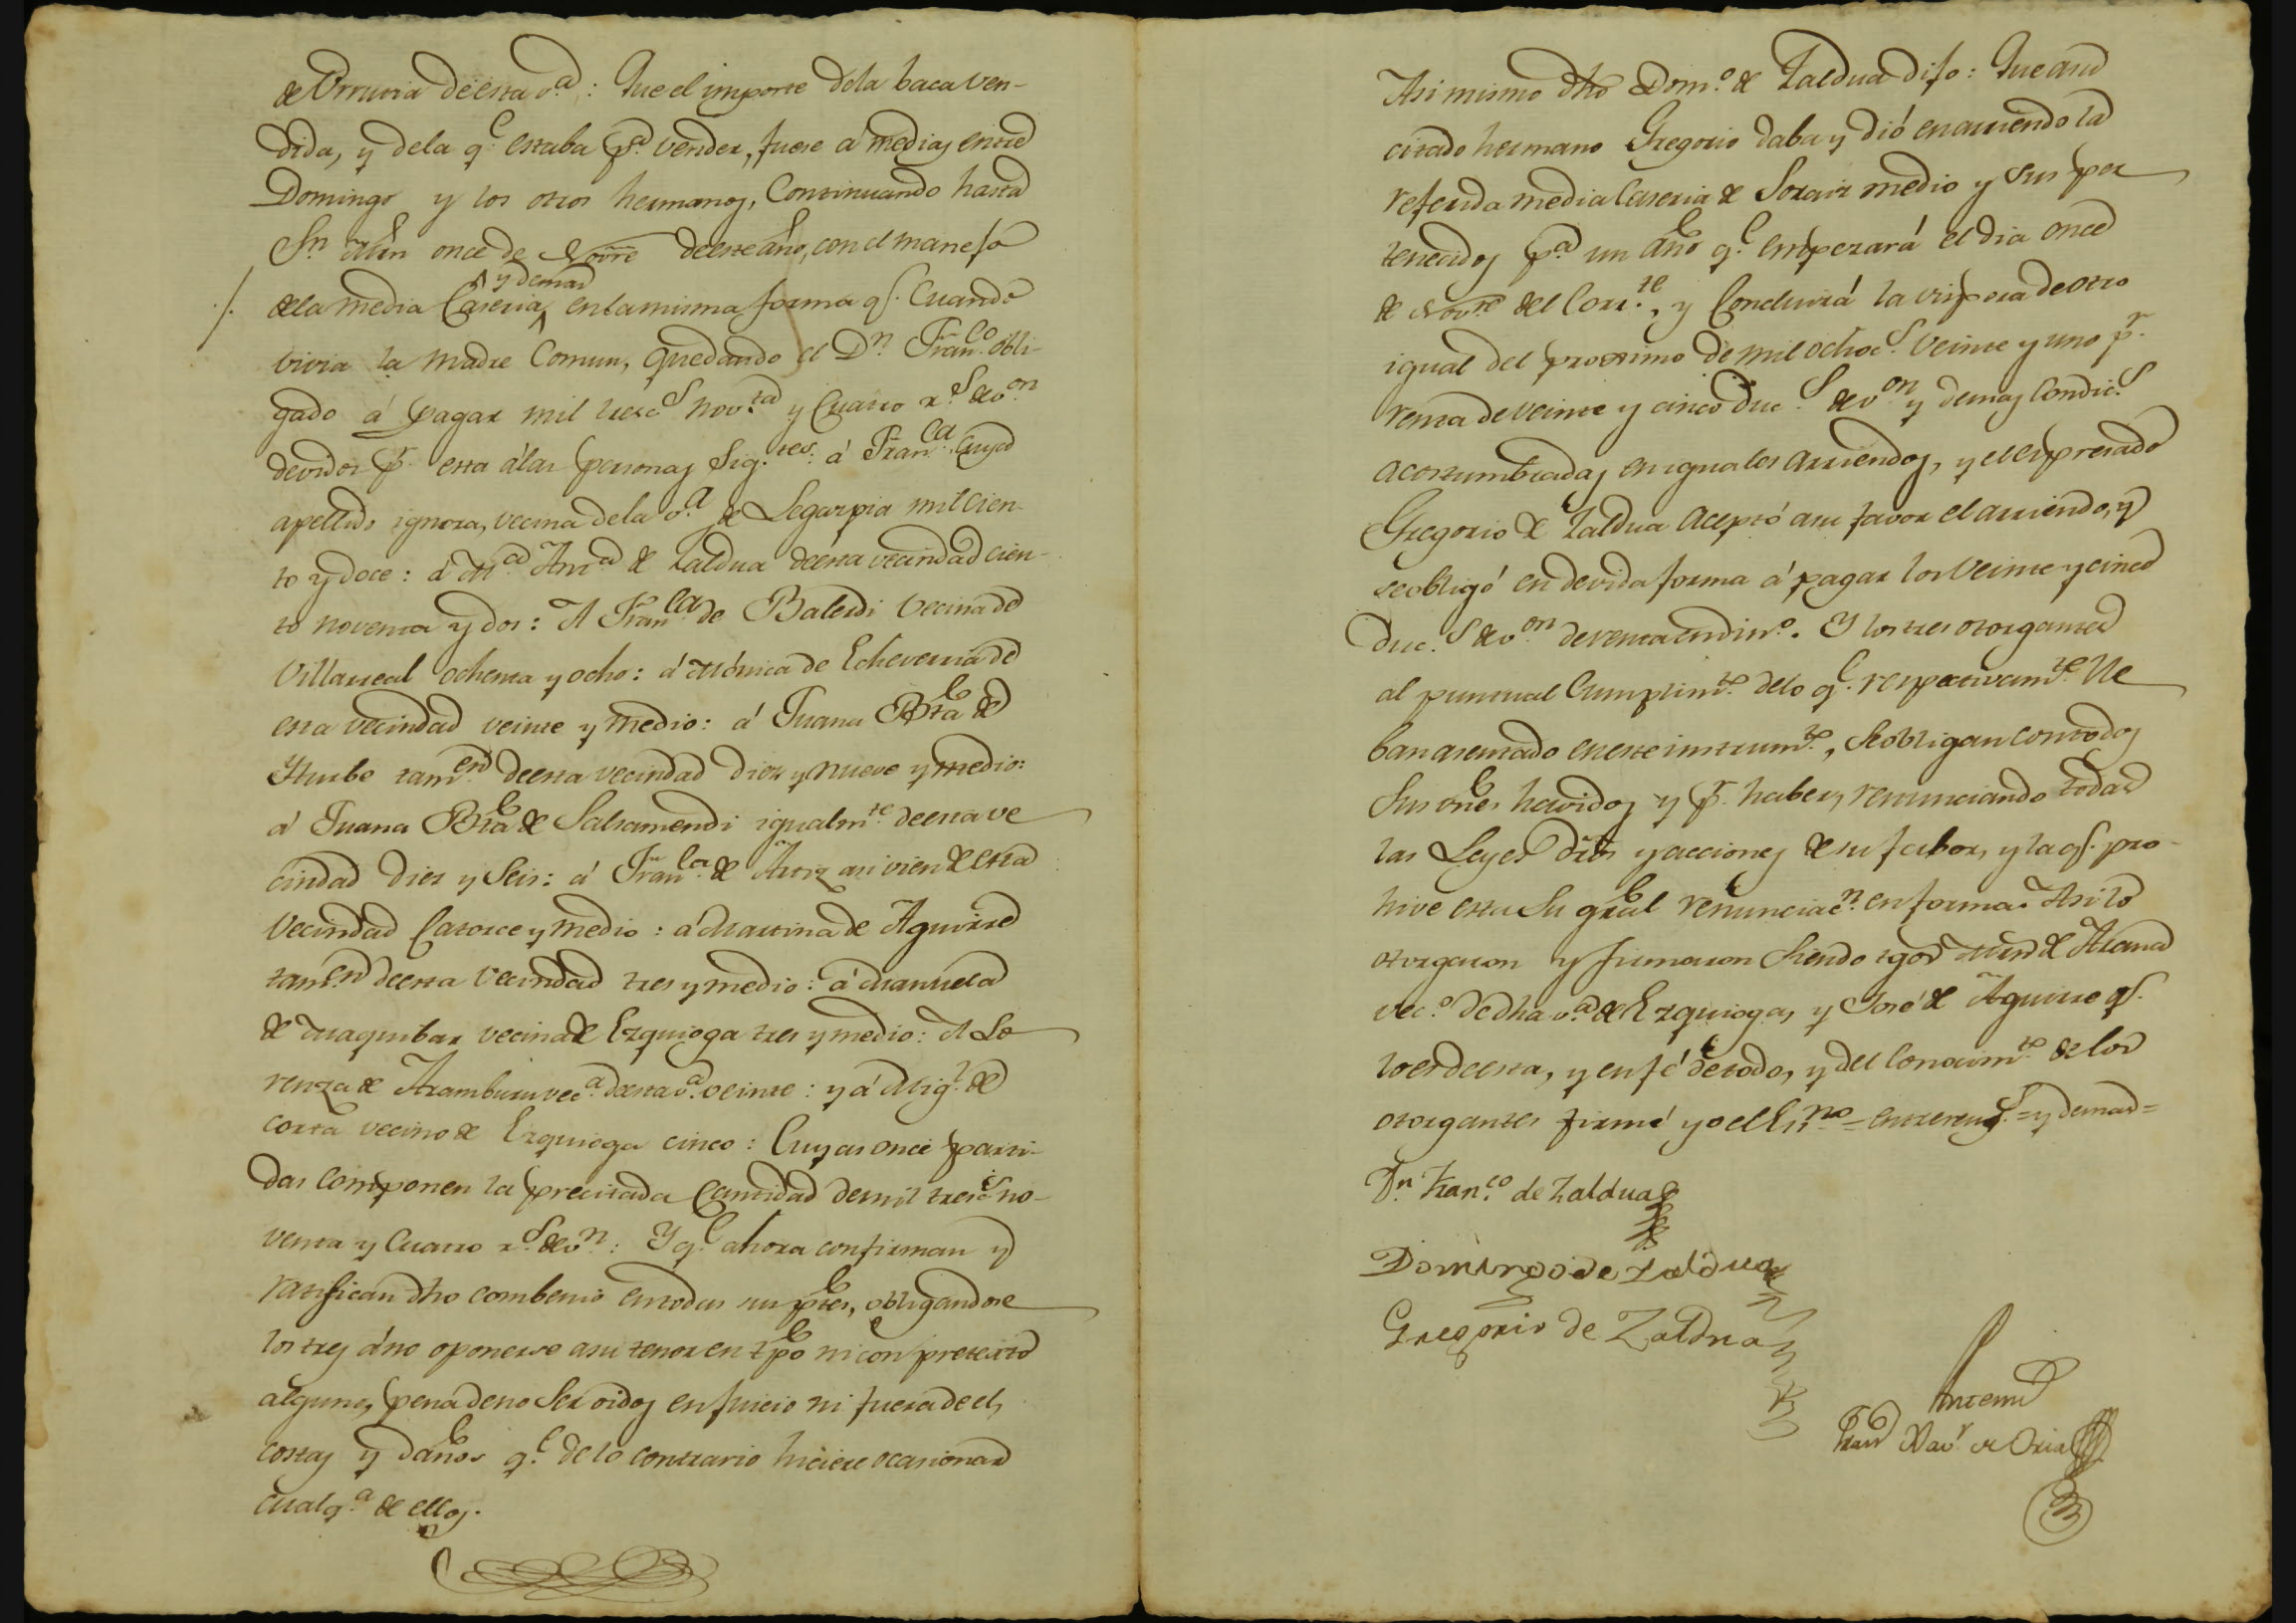 de Urruvia de esta v.ª: Que el importe dela baca ven-
dida, y dela q.e estaba p.ª vender, fuese á medias entre
Domingo y los otros hermanos, Continuando hasta
Sn. Mrn once de Novre de este año, con el manejo
y demas
./. dela media Caseria ^ en la misma forma q.e Cuando
vivia la madre Comun, quedando el Dn. Fran.co obli-
gado á pagar mil tresc.s nov.ta y Cuatro r.s de v.on
devidos p.r esta á las personas sig.tes: á Fran.ca Cuyo
apellido ignora, vecina de la v.ª de Legazpia mil cien-
to y doce: á M.ª Ant.ª de Zaldua de esta vecindad cien-
to noventa y dos: A Fran.ca de Balerdi vecina de
Villarreal ochenta y ocho: á Mónica de Echeverria de
esta vecindad veinte y medio: á Juana Bta de
Yturbe tamven de esta vecindad diez y nueve y medio:
á Juana Bta de Salsamendi igualm.te de esta ve
cindad diez y Seis: á Fran.ca de Artiz asi vien de esta
Vecindad Catorce y medio: á Martina de Aguirre
tamvn de esta Vecindad tres y medio: á Manuela
de Maquibar vecina de Ezquioga tres y medio: A Lo
renza de Aramburu vec.ª de esta v.ª veinte: y á Mig.l de
Corta vecino de Ezquioga cinco: Cuyas once parti-
das Componen la precitada Cantidad de mil tresc.s no-
venta y Cuatro r.s de v.n: Y q.e ahora confirman y
ratifican dho combenio en todas sus ptes, obligandose
los tres á no oponerse a su tenor en tpo ni con pretexto
alguno, pena de no Ser oidos en juicio ni fuera de el,
costas y daños q.e de lo contrario hiciere ocasionar
cualq.ª de ellos.
Asi mismo dho Dom.o de Zaldua dijo: Que a su
citado hermano Gregorio daba y dió en arriendo la
referida media Caseria de Soraiz medio y sus per
tenecidos p.ª un año q.e empezará el dia once
de Nov.re del Corr.te, y Concluirá la vispera de otro
igual del proximo de mil ochoc.s veinte y uno p.r
renta de veinte y cinco duc.s de v.on y demas Condic.s
acostumbradas en iguales arriendos, y el expresado
Gregorio de Zaldua aceptó a su favor el arriendo, y
se obligó en devida forma á pagar los Veinte y cinco
Duc.s de v.on de renta en din.o. Y los tres otorgantes
al puntual Cumplim.to de lo q.e respectivam.te lle
ban asentado en este instrum.to, se obligan con todos
Sus vnes havidos y p.r haber, renunciando todas
las Leyes dros y acciones de su fabor, y la q.e pro-
hive esta Su gral renunciac.n en forma. Asi lo
otorgaron y firmaron Siendo tgos Mrn de Arana
vec.o de dha v.ª de Ezquioga, y José de Aguirre q.e
lo es de esta, y en fé de todo, y del Conocim.to de los
otorgantes firmé yo el Es.no = entrereng.s = y demas =
Jn. Fran.co de Zaldua
Domingo de Zaldua
Gregorio de Zaldua
Ante mi
Fran.co Xav.r de Oria